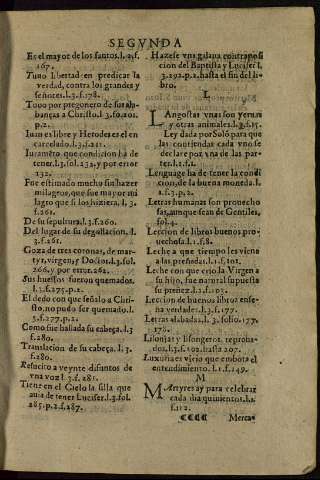 SEGVNDA
Es el mayor de los santos. l. 2. f.
167.
Tuuo libertad en predicar la
verdad, contra los grandes y
señores. l. 3. f. 178.
Tuuo por pregonero de sus ala-
banças a Christo. l. 3. fo. 201.
p. 2.
Iuan es libre y Herodes es el en
carcelado. l. 3. f. 211.
Iuramẽto que condicion ha de
tener. l. 3. fol. 232. y por error
232.
Fue estimado mucho sin hazer
milagros, que fue mayor mi
lagro que si los hiziera. l. 3.
f. 261.
De su sepultura. l. 3. f. 260.
Del lugar de su degollacion. l.
3. f. 261.
Goza de tres coronas, de mar-
tyr, virgen, y Doctor. l. 3. fol.
266. y por error. 262.
Sus huessos fueron quemados.
l. 3. f. 275. p. 2.
El dedo con que señalo a Chri-
sto, no pudo ser quemado. l.
3. f. 277. p. 2.
Como fue hallada su cabeça. l. 3
f. 280.
Translacion de su cabeça. l. 3.
f. 280.
Resucito a veynte difuntos de
vna voz l. 3. f. 281.
Tiene en el Cielo la silla que
auia de tener Lucifer. l. 3. fol.
285. p. 2. f. 287.
Hazese vna galana contraposi
cion del Baptista y Lucifer l.
3. 292. p. 2. hasta el fin del li-
bro.
L
LAngostas vnas son yeruas
y otras animales. l. 3. f. 15.
Ley dada por Solõ para que
las contiendas cada vno se
declare por vna de las par-
tes. l. 1. f. 1.
Lenguage ha de tener la condi
cion, de la buena moneda. l.
1. f. 3. p. 2.
Letras humanas son prouecho
sas, aunque sean de Gentiles,
fol. 4.
Leccion de libros buenos pro-
uechosa. l. 1. f. 8.
Leche a que tiempo les viene
a las preñadas. l. 1. f. 102.
Leche con que crio la Virgen a
su hijo, fue natural supuesta
su preñez. l. 1. f. 103.
Leccion de buenos libros ense-
ña verdades. l. 3. f. 177.
Letras alabadas. l. 3. folio. 177.
178.
Lisonjas y lisongeros reproba-
dos. l. 3. f. 202. hasta 207.
Luxuria es viejo que embota el
entendimiento. l. 1. f. 149.
M
MArtyres ay para celebrar
cada dia quinientos. l. 1.
f. 112.
CCCC Merca-